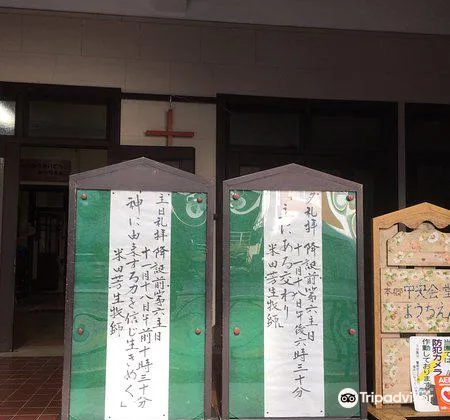 主日礼拝 降誕前第六主日
十一月十八日午前十時三十分
「神に由来する力を信じ生きぬく。」
米田芳生牧師
夕礼拝 降誕前第六主日
十一月十八日午後六時三十分
「主にある交わり」
米田芳生牧師
本郷中央会堂
ようちえん
防犯カメラ
作動しております
AED
TripAdvisor